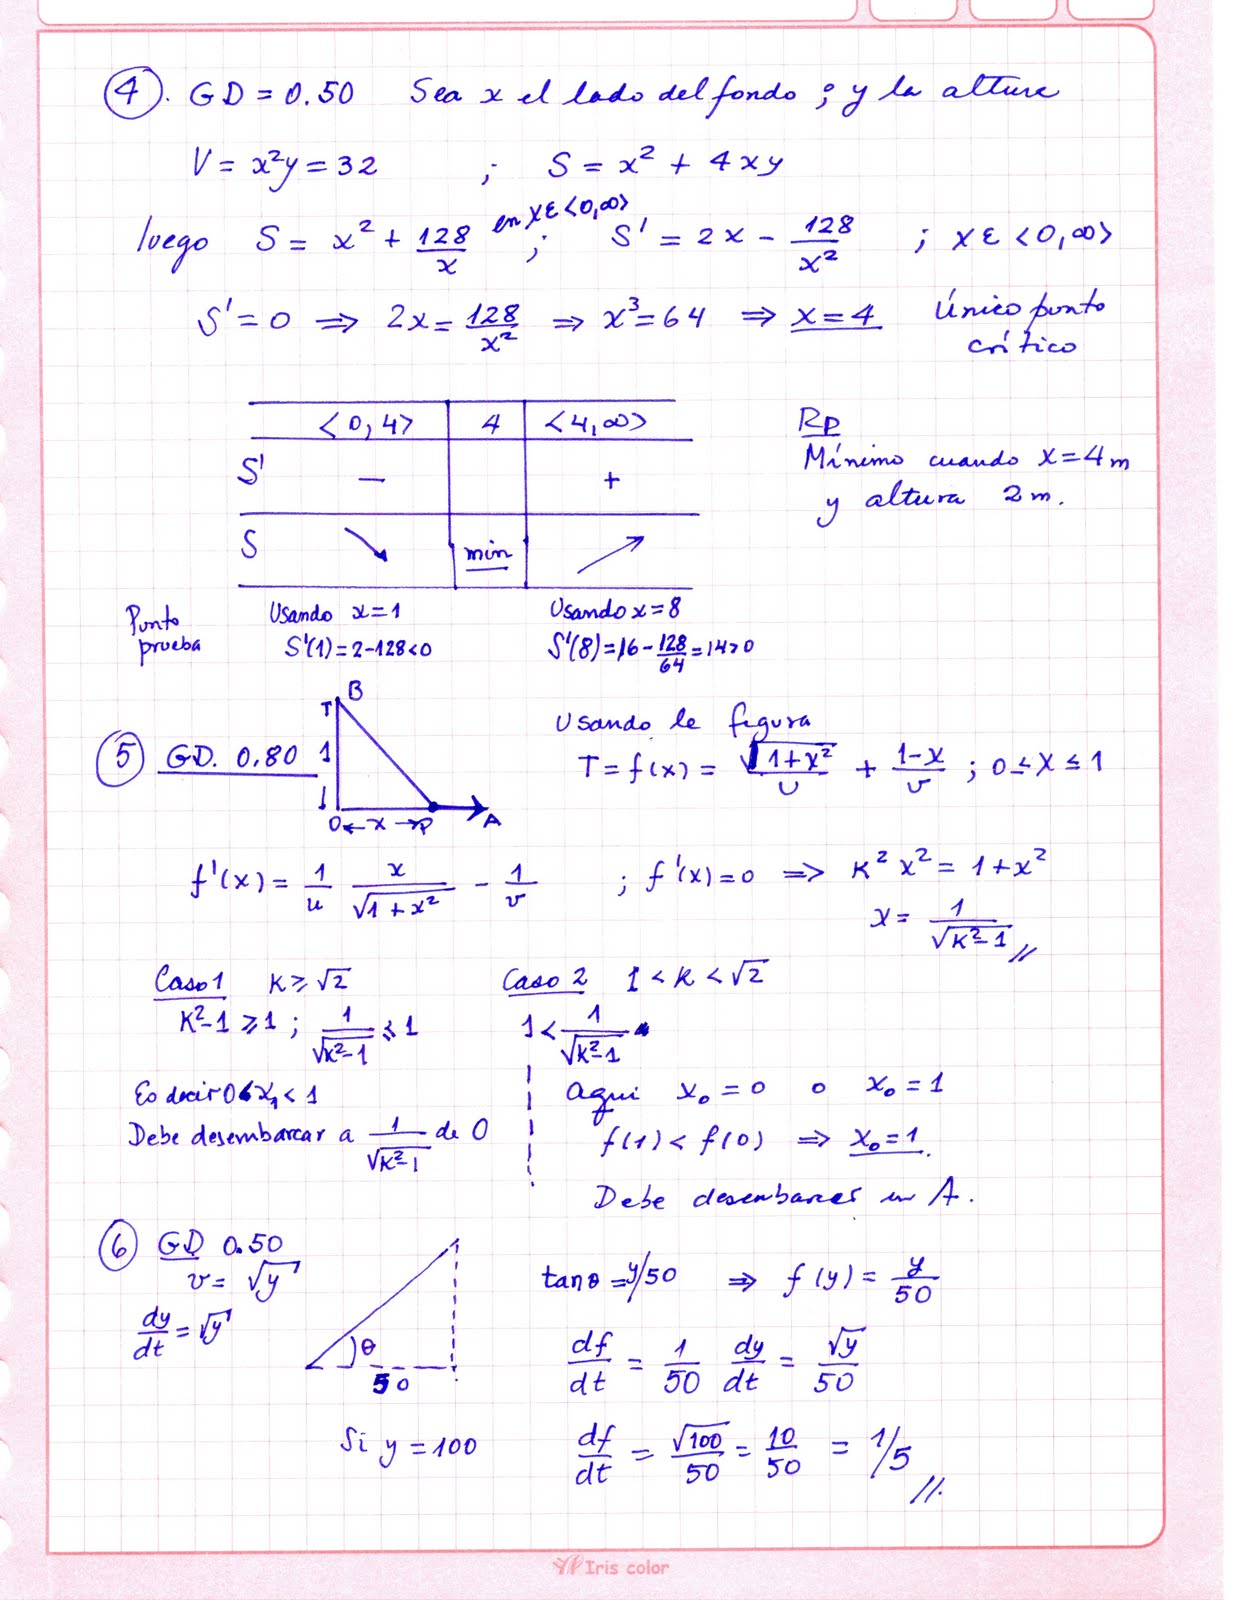 ④. GD = 0.50 Sea x el lado del fondo ; y la altura
V = x²y = 32 ; S = x² + 4xy
luego S = x² + 128/x en x ε <0,∞> ; S' = 2x - 128/x² ; x ε <0,∞>
S' = 0 ⇒ 2x = 128/x² ⇒ x³ = 64 ⇒ x = 4 Único punto
crítico
<0,4> 4 <4,∞>
S' - +
S ↘ min ↗
Rp
Mínimo cuando x = 4m
y altura 2m.
Punto prueba
Usando x = 1
S'(1) = 2-128<0
Usando x = 8
S'(8) = 16 - 128/64 = 14>0
⑤ GD. 0.80
T B
1
0 ← x → P A
Usando la figura
T = f(x) = √(1+x²)/u + (1-x)/v ; 0 ≤ x ≤ 1
f'(x) = 1/u x/√(1+x²) - 1/v ; f'(x) = 0 ⇒ K² x² = 1+x²
x = 1/√(K²-1) //
Caso 1 K ≥ √2
K²-1 ≥ 1 ; 1/√(K²-1) ≤ 1
Es decir 0< x₁ < 1
Debe desembarcar a 1/√(K²-1) de 0
Caso 2 1 < K < √2
1 < 1/√(K²-1)
Aqui x₀ = 0 o x₀ = 1
f(1) < f(0) ⇒ x₀ = 1.
Debe desembarcar en A.
⑥ GD 0.50
v = √y
dy/dt = √y
θ
50
tan θ = y/50 ⇒ f(y) = y/50
df/dt = 1/50 dy/dt = √y/50
Si y = 100 df/dt = √100/50 = 10/50 = 1/5 //.
Iris color